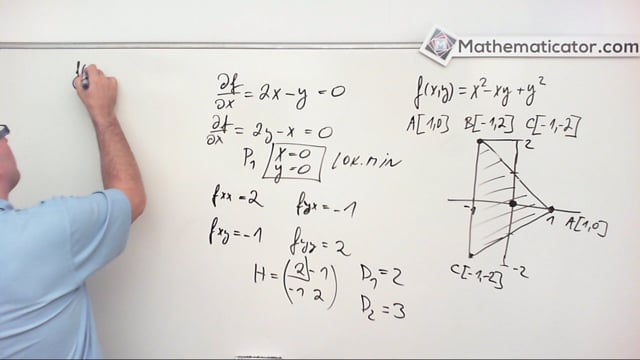 Mathematicator.com
∂f/∂x = 2x - y = 0
∂f/∂x = 2y - x = 0
P₁ x = 0
y = 0
lok. min
fxx = 2 fyx = -1
fxy = -1 fyy = 2
H = (2 -1
-1 2)
D₁ = 2
D₂ = 3
f(x,y) = x² - xy + y²
A[1,0] B[-1,2] C[-1,-2]
2
-1
1
A[1,0]
C[-1,-2]
-2